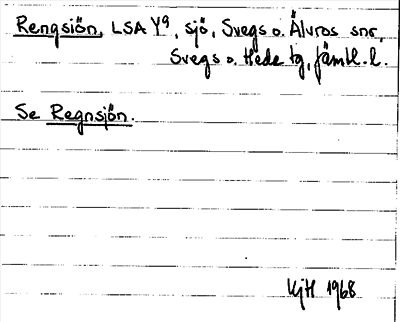 Rengsiön, LSA Y9, sjö, Svegs o. Älvros snr,
Svegs o. Hede tg, Jämtl. l.
Se Regnsjön.
KjH 1968